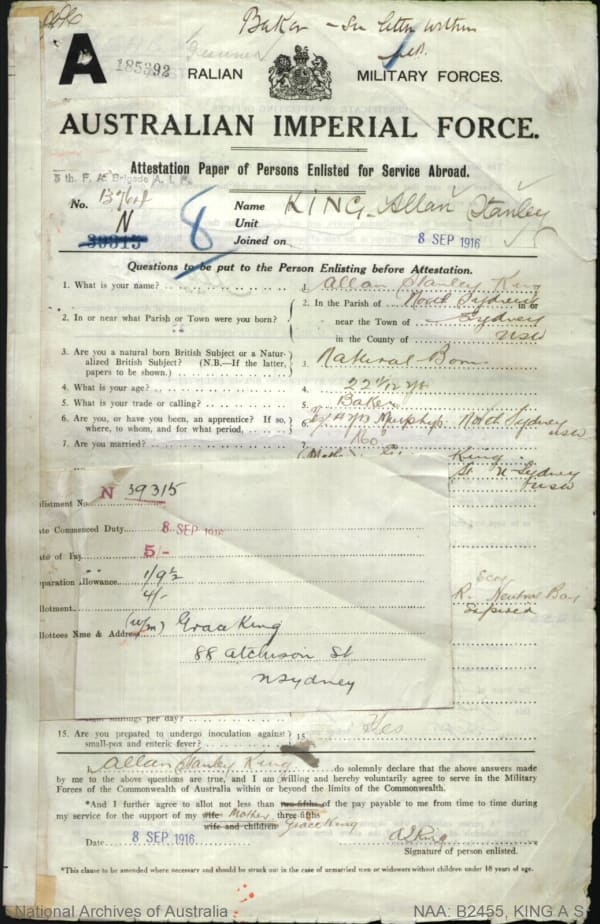 Baker - See letter within
A
185392
RALIAN MILITARY FORCES.
AUSTRALIAN IMPERIAL FORCE.
Attestation Paper of Persons Enlisted for Service Abroad.
5th. F. A. Brigade A. I. F.
No.
N
39315
8
Name KING Allan Stanley
Unit
Joined on 8 SEP 1916
Questions to be put to the Person Enlisting before Attestation.
1. What is your name? 1. Allan Stanley King
2. In or near what Parish or Town were you born? 2. In the Parish of North Sydney in or
near the Town of Sydney
in the County of NSW
3. Are you a natural born British Subject or a Natur-
alized British Subject? (N.B.—If the latter,
papers to be shown.) 3. Natural Born
4. What is your age? 4. 22
5. What is your trade or calling? 5. Baker
6. Are you, or have you been, an apprentice? If so,
where, to whom, and for what period, 6. Murphys. North Sydney
NSW
7. Are you married? 7. No
King
St N. Sydney
NSW
N 39315
listment No.
te Commenced Duty. 8 SEP 1916
te of Pay. 5/-
paration Allowance. 1/9½
lotment. 4/-
lottees Nme & Address (W/M) Grace King
88 Atchison St
N Sydney
R. Neutral Bay
Expired
shillings per day?
15. Are you prepared to undergo inoculation against
small-pox and enteric fever? 15 Yes
I, Allan Stanley King do solemnly declare that the above answers made
by me to the above questions are true, and I am willing and hereby voluntarily agree to serve in the Military
Forces of the Commonwealth of Australia within or beyond the limits of the Commonwealth.
*And I further agree to allot not less than two-fifths of the pay payable to me from time to time during
three-fifths
my service for the support of my wife Mother
wife and children Grace King
Date 8 SEP 1916
A S King
Signature of person enlisted.
*This clause to be amended where necessary and should be struck out in the case of unmarried men or widowers without children under 18 years of age.
National Archives of Australia
NAA: B2455, KING A S